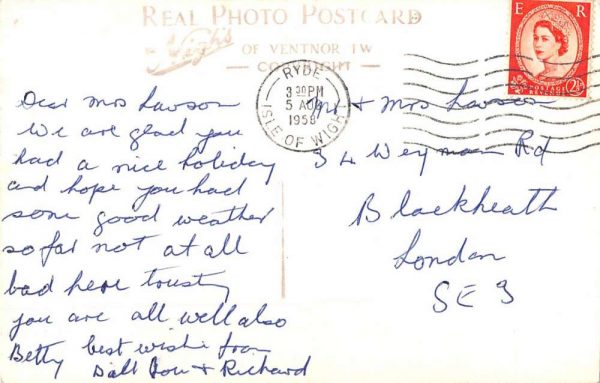 REAL PHOTO POSTCARD
Nigh's
OF VENTNOR I W
— COPYRIGHT —
E R
POSTAGE REVENUE
2½D
RYDE
3 30 PM
5 AUG
1958
ISLE OF WIGHT
Dear Mrs Lawson
We are glad you
had a nice holiday
and hope you had
some good weather
so far not at all
bad here trusting
you are all well also
Betty best wishes from
& Richard
Mr & Mrs Lawson
34 Weyman Rd
Blackheath
London
SE3